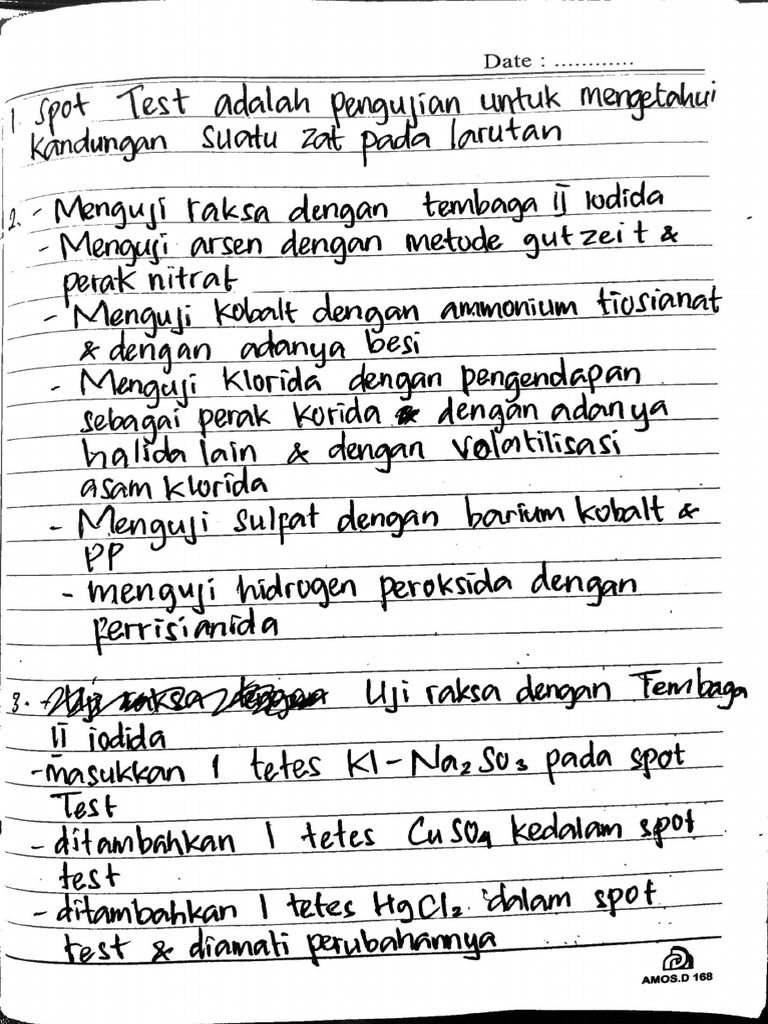 Date : ............
1 Spot Test adalah pengujian untuk mengetahui
kandungan suatu zat pada larutan
2. - Menguji raksa dengan tembaga II Iodida
- Menguji arsen dengan metode gutzeit &
perak nitrat
- Menguji kobalt dengan ammonium tiosianat
& dengan adanya besi
- Menguji klorida dengan pengendapan
sebagai perak korida dengan adanya
halida lain & dengan volatilisasi
asam klorida
- Menguji sulfat dengan barium kobalt &
PP
- menguji hidrogen peroksida dengan
ferrisianida
3. Uji raksa dengan Tembaga
II iodida
- masukkan 1 tetes KI - Na₂SO₃ pada spot
Test
- ditambahkan 1 tetes CuSO₄ kedalam spot
test
- ditambahkan 1 tetes HgCl₂ dalam spot
test & diamati perubahannya
AMOS.D 168